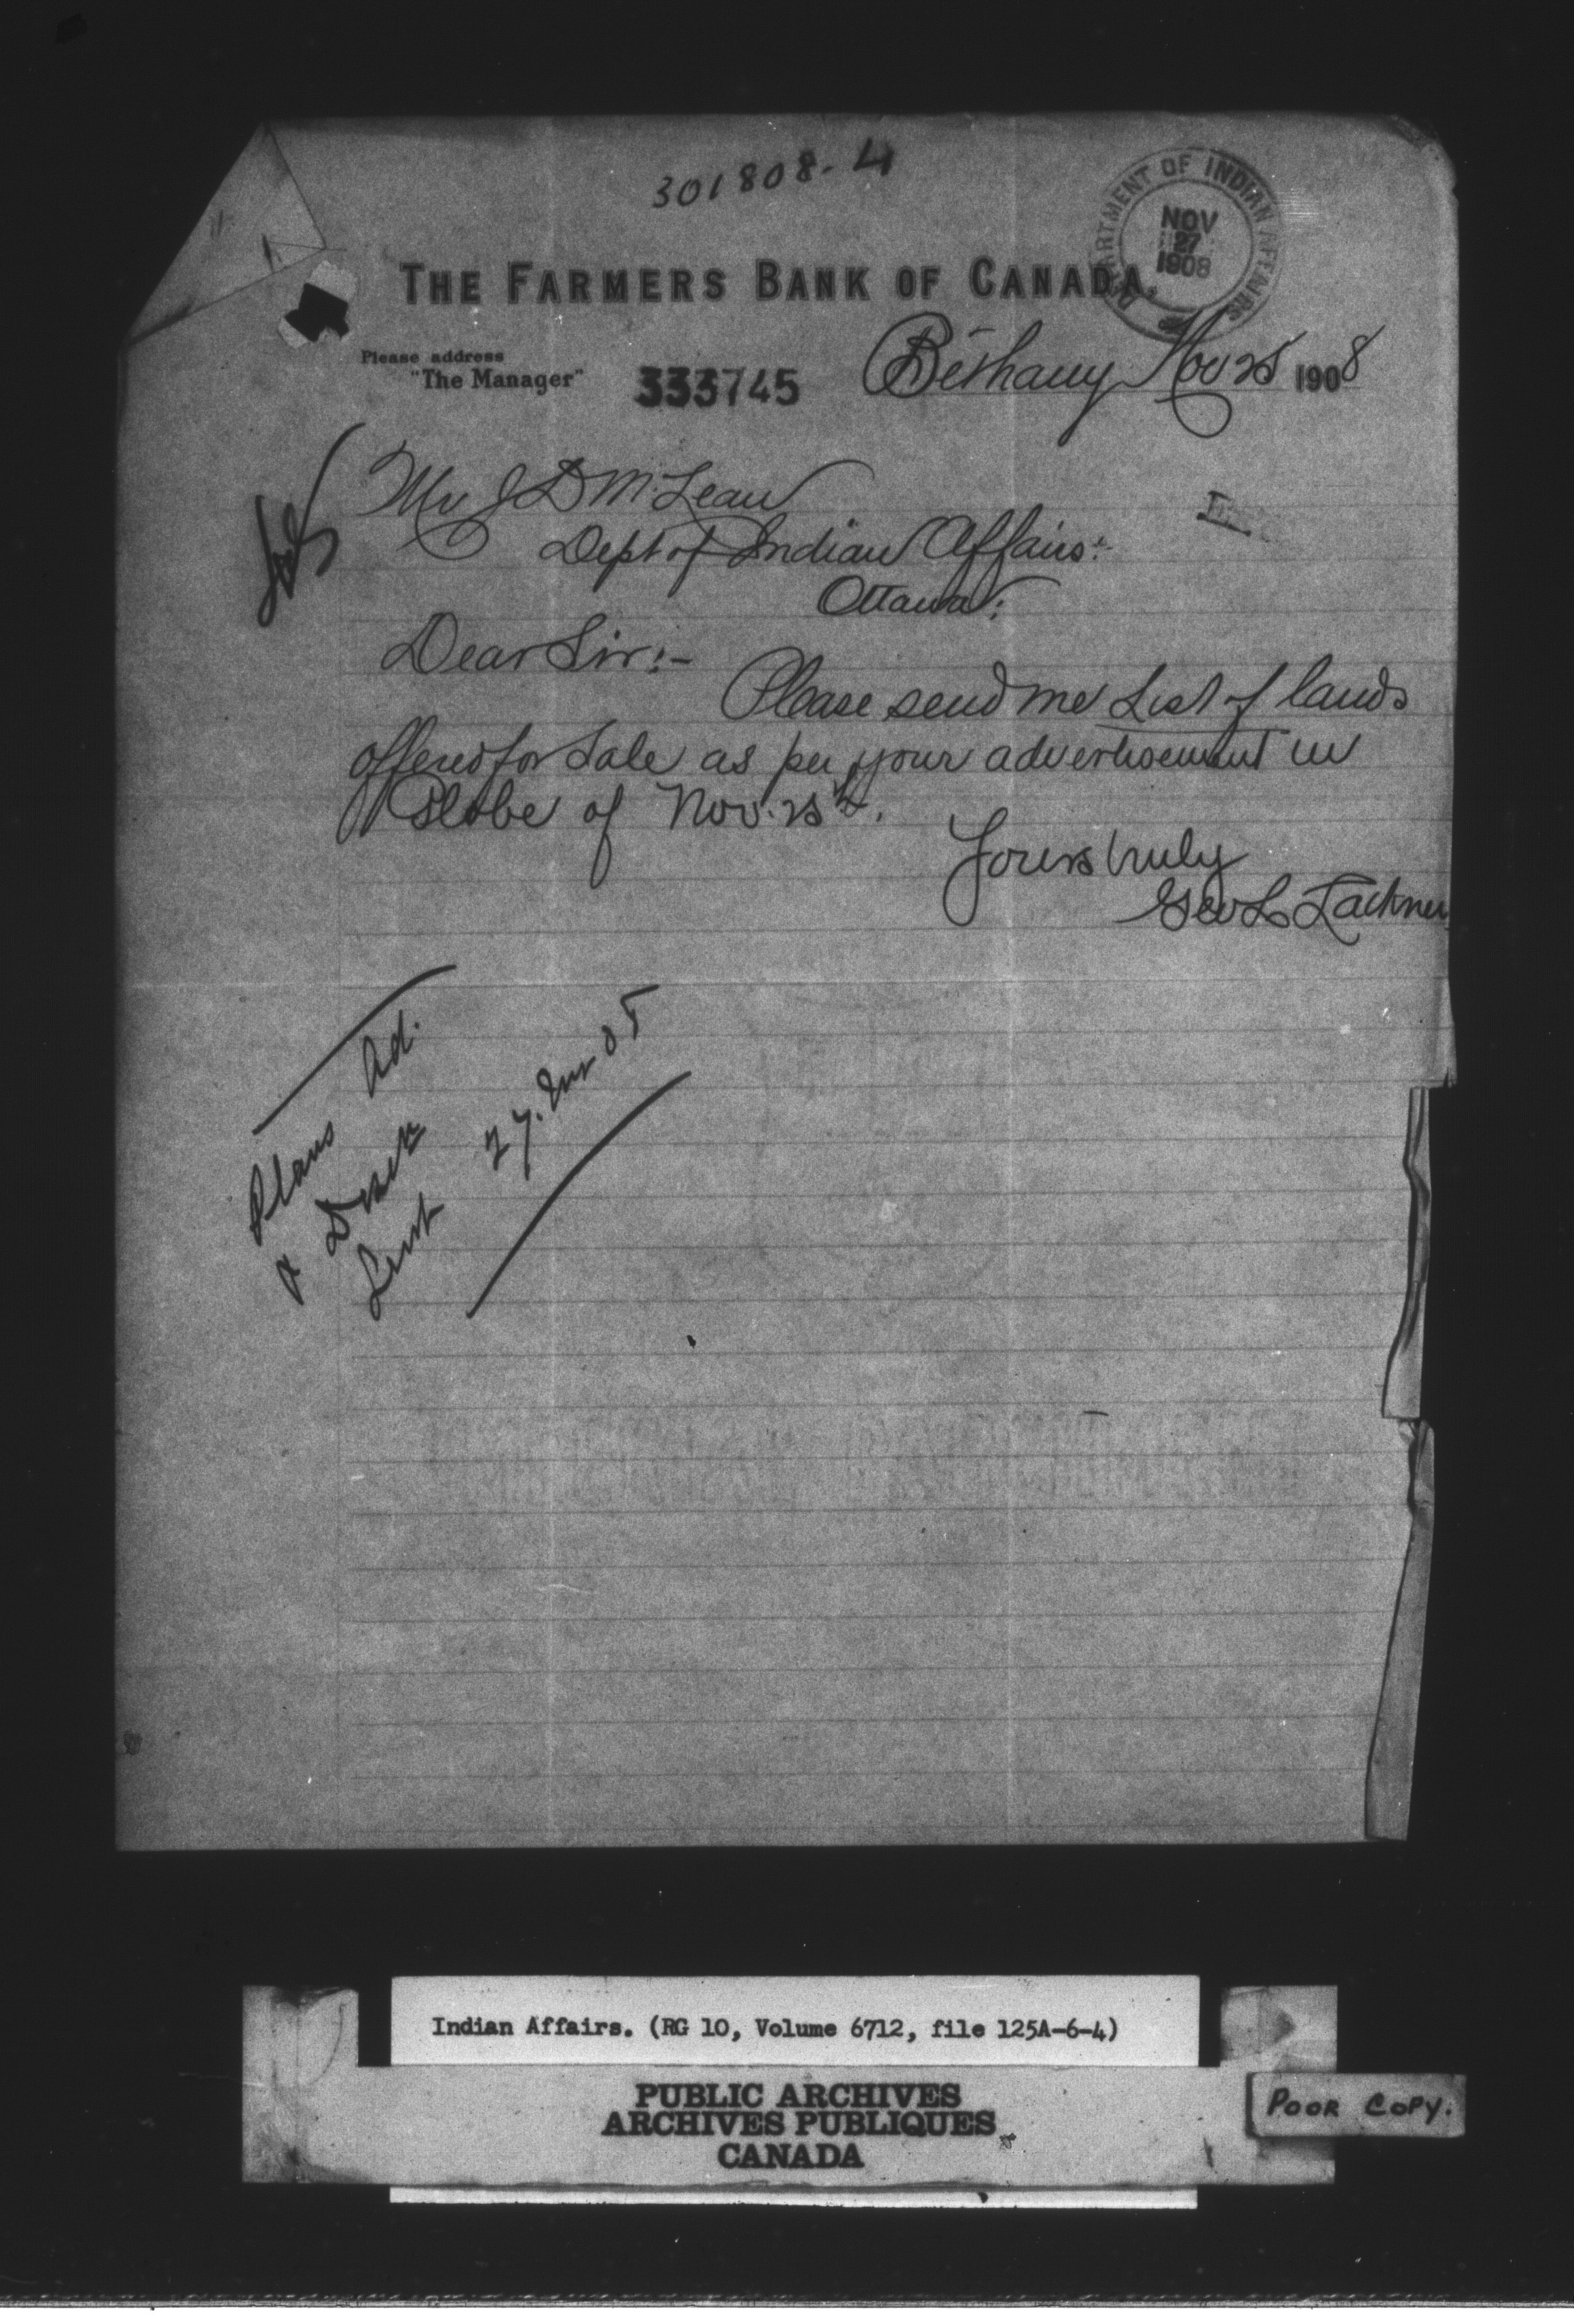 301808-4
DEPARTMENT OF INDIAN AFFAIRS
NOV
27
1908
THE FARMERS BANK OF CANADA,
Please address
"The Manager"
333745
Bethany Nov 25 1908
Mr J D McLean
Dept of Indian Affairs:
Ottawa:
Dear Sir:-
Please send me List of lands
offered for Sale as per your advertisement in
Globe of Nov. 25th.
Yours truly
Geo L Lackner
Plans Ad.
Sent 27.
Indian Affairs. (RG 10, Volume 6712, file 125A-6-4)
PUBLIC ARCHIVES
ARCHIVES PUBLIQUES
CANADA
POOR COPY.